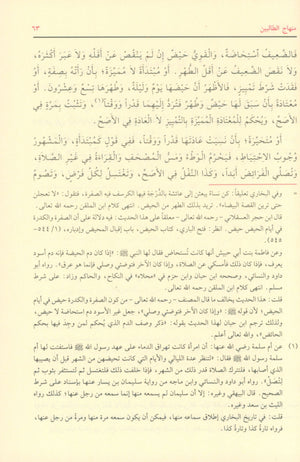 منهاج الطالبين ٦٣
فَالضَّعِيفُ ٱسْتِحَاضَةٌ، وَالْقَوِيُّ حَيْضٌ إِنْ لَمْ يَنْقُصْ عَنْ أَقَلِّهِ وَلاَ عَبَرَ أَكْثَرَهُ،
وَلاَ نَقَصَ الضَّعِيفُ عَنْ أَقَلِّ الطُّهْرِ. أَوْ مُبْتَدَأَةً لاَ مُمَيِّزَةً؛ بِأَنْ رَأَتْهُ بِصِفَةٍ، أَوْ
فَقَدَتْ شَرْطَ تَمْيِيزٍ، فَالأَظْهَرُ أَنَّ حَيْضَهَا يَوْمٌ وَلَيْلَةٌ، وَطُهْرَهَا تِسْعٌ وَعِشْرُونَ. أَوْ
مُعْتَادَةً بِأَنْ سَبَقَ لَهَا حَيْضٌ وَطُهْرٌ فَتُرَدُّ إِلَيْهِمَا قَدْراً وَوَقْتاً(١)، وَتَثْبُتُ بِمَرَّةٍ فِي
الأَصَحِّ، وَيُحْكَمُ لِلْمُعْتَادَةِ الْمُمَيِّزَةِ بِالتَّمْيِيزِ لاَ الْعَادَةِ فِي الأَصَحِّ.
أَوْ مُتَحَيِّرَةً؛ بِأَنْ نَسِيَتْ عَادَتَهَا قَدْراً وَوَقْتاً، فَفِي قَوْلٍ كَمُبْتَدَأَةٍ، وَالْمَشْهُورُ
وُجُوبُ الاِحْتِيَاطِ، فَيَحْرُمُ الْوَطْءُ وَمَسُّ الْمُصْحَفِ وَالْقِرَاءَةُ فِي غَيْرِ الصَّلاَةِ،
وَتُصَلِّي الْفَرَائِضَ أَبَداً، وَكَذَا النَّفْلُ فِي الأَصَحِّ، وَتَغْتَسِلُ لِكُلِّ فَرْضٍ، وَتَصُومُ
= وفي البخاري تعليقاً: كن نساءٌ يبعثن إلى عائشة بالدُّرْجة فيها الكرسف فيه الصفرة، فتقول: «لا تعجلن
حتى ترين القصة البيضاء». تريد بذلك الطهر من الحيض. انتهى كلام ابن الملقن رحمه الله تعالى.
قال ابن حجر العسقلاني - رحمه الله تعالى - معلقاً على هذا الحديث: فيه دلالة على أن الصفرة والكدرة
في أيام الحيض حيض. انظر: فتح الباري، كتاب الحيض، باب إقبال المحيض وإدباره، (١/ ٥٤٤-
٥٤٥)
وعن فاطمة بنت أبي حبيش أنها كانت تُستحاض فقال لها النبي ﷺ: «إذا كان دم الحيضة فإنه دم أسود
يعرف، فإذا كان ذلك فأمسكي عن الصلاة، وإذا كان الآخر فتوضئي وصلي فإنما هو عرق». رواه أبو
داود والنسائي، وصححه ابن حبان وابن حزم في «محلاه» في النكاح، والحاكم وزاد: على شرط
مسلم. انتهى كلام ابن الملقن رحمه الله تعالى.
قلت: هذا الحديث يخالف ما قال المصنف - رحمه الله تعالى - من كون الصفرة والكدرة حيض في أيام
الحيض؛ لأن قوله ﷺ: «وإذا كان الآخر فتوضئي وصلي»، جعل غير الأسود دم استحاضة لا حيض،
ولذلك ترجم ابن حبان لهذا الحديث بقوله: «ذكر وصف الدم الذي يُحكم لمن وجد فيها بحكم
الحائض»، والله تعالى أعلم.
(١) عن أم سلمة رضي الله عنها: أن امرأة كانت تهراق الدماء على عهد رسول الله ﷺ فاستفتت لها أم
سلمة رسول الله ﷺ فقال: «لتنظر عدة الليالي والأيام التي كانت تحيضهن من الشهر قبل أن يصيبها
الذي أصابها، فلتترك الصلاة قدر ذلك من الشهر، فإذا خلفت ذلك فلتغتسل ثم لتستثفر بثوب ثم
لتُصلِّ». رواه أبو داود والنسائي وابن ماجه من رواية سليمان بن يسار عنها بإسناد على شرط
الصحيح. قال البيهقي وغيره: إلا أن سليمان لم يسمعه إنما سمعه من رجل عنها؛ كذلك رواه
الليث بن سعد وغيره.
قلت: في تاريخ البخاري إطلاق سماعه منها، فيمكن أن يكون سمعه مرة منها ومرة من رجل عنها،
فرواه تارةً كذا وتارةً كذا.